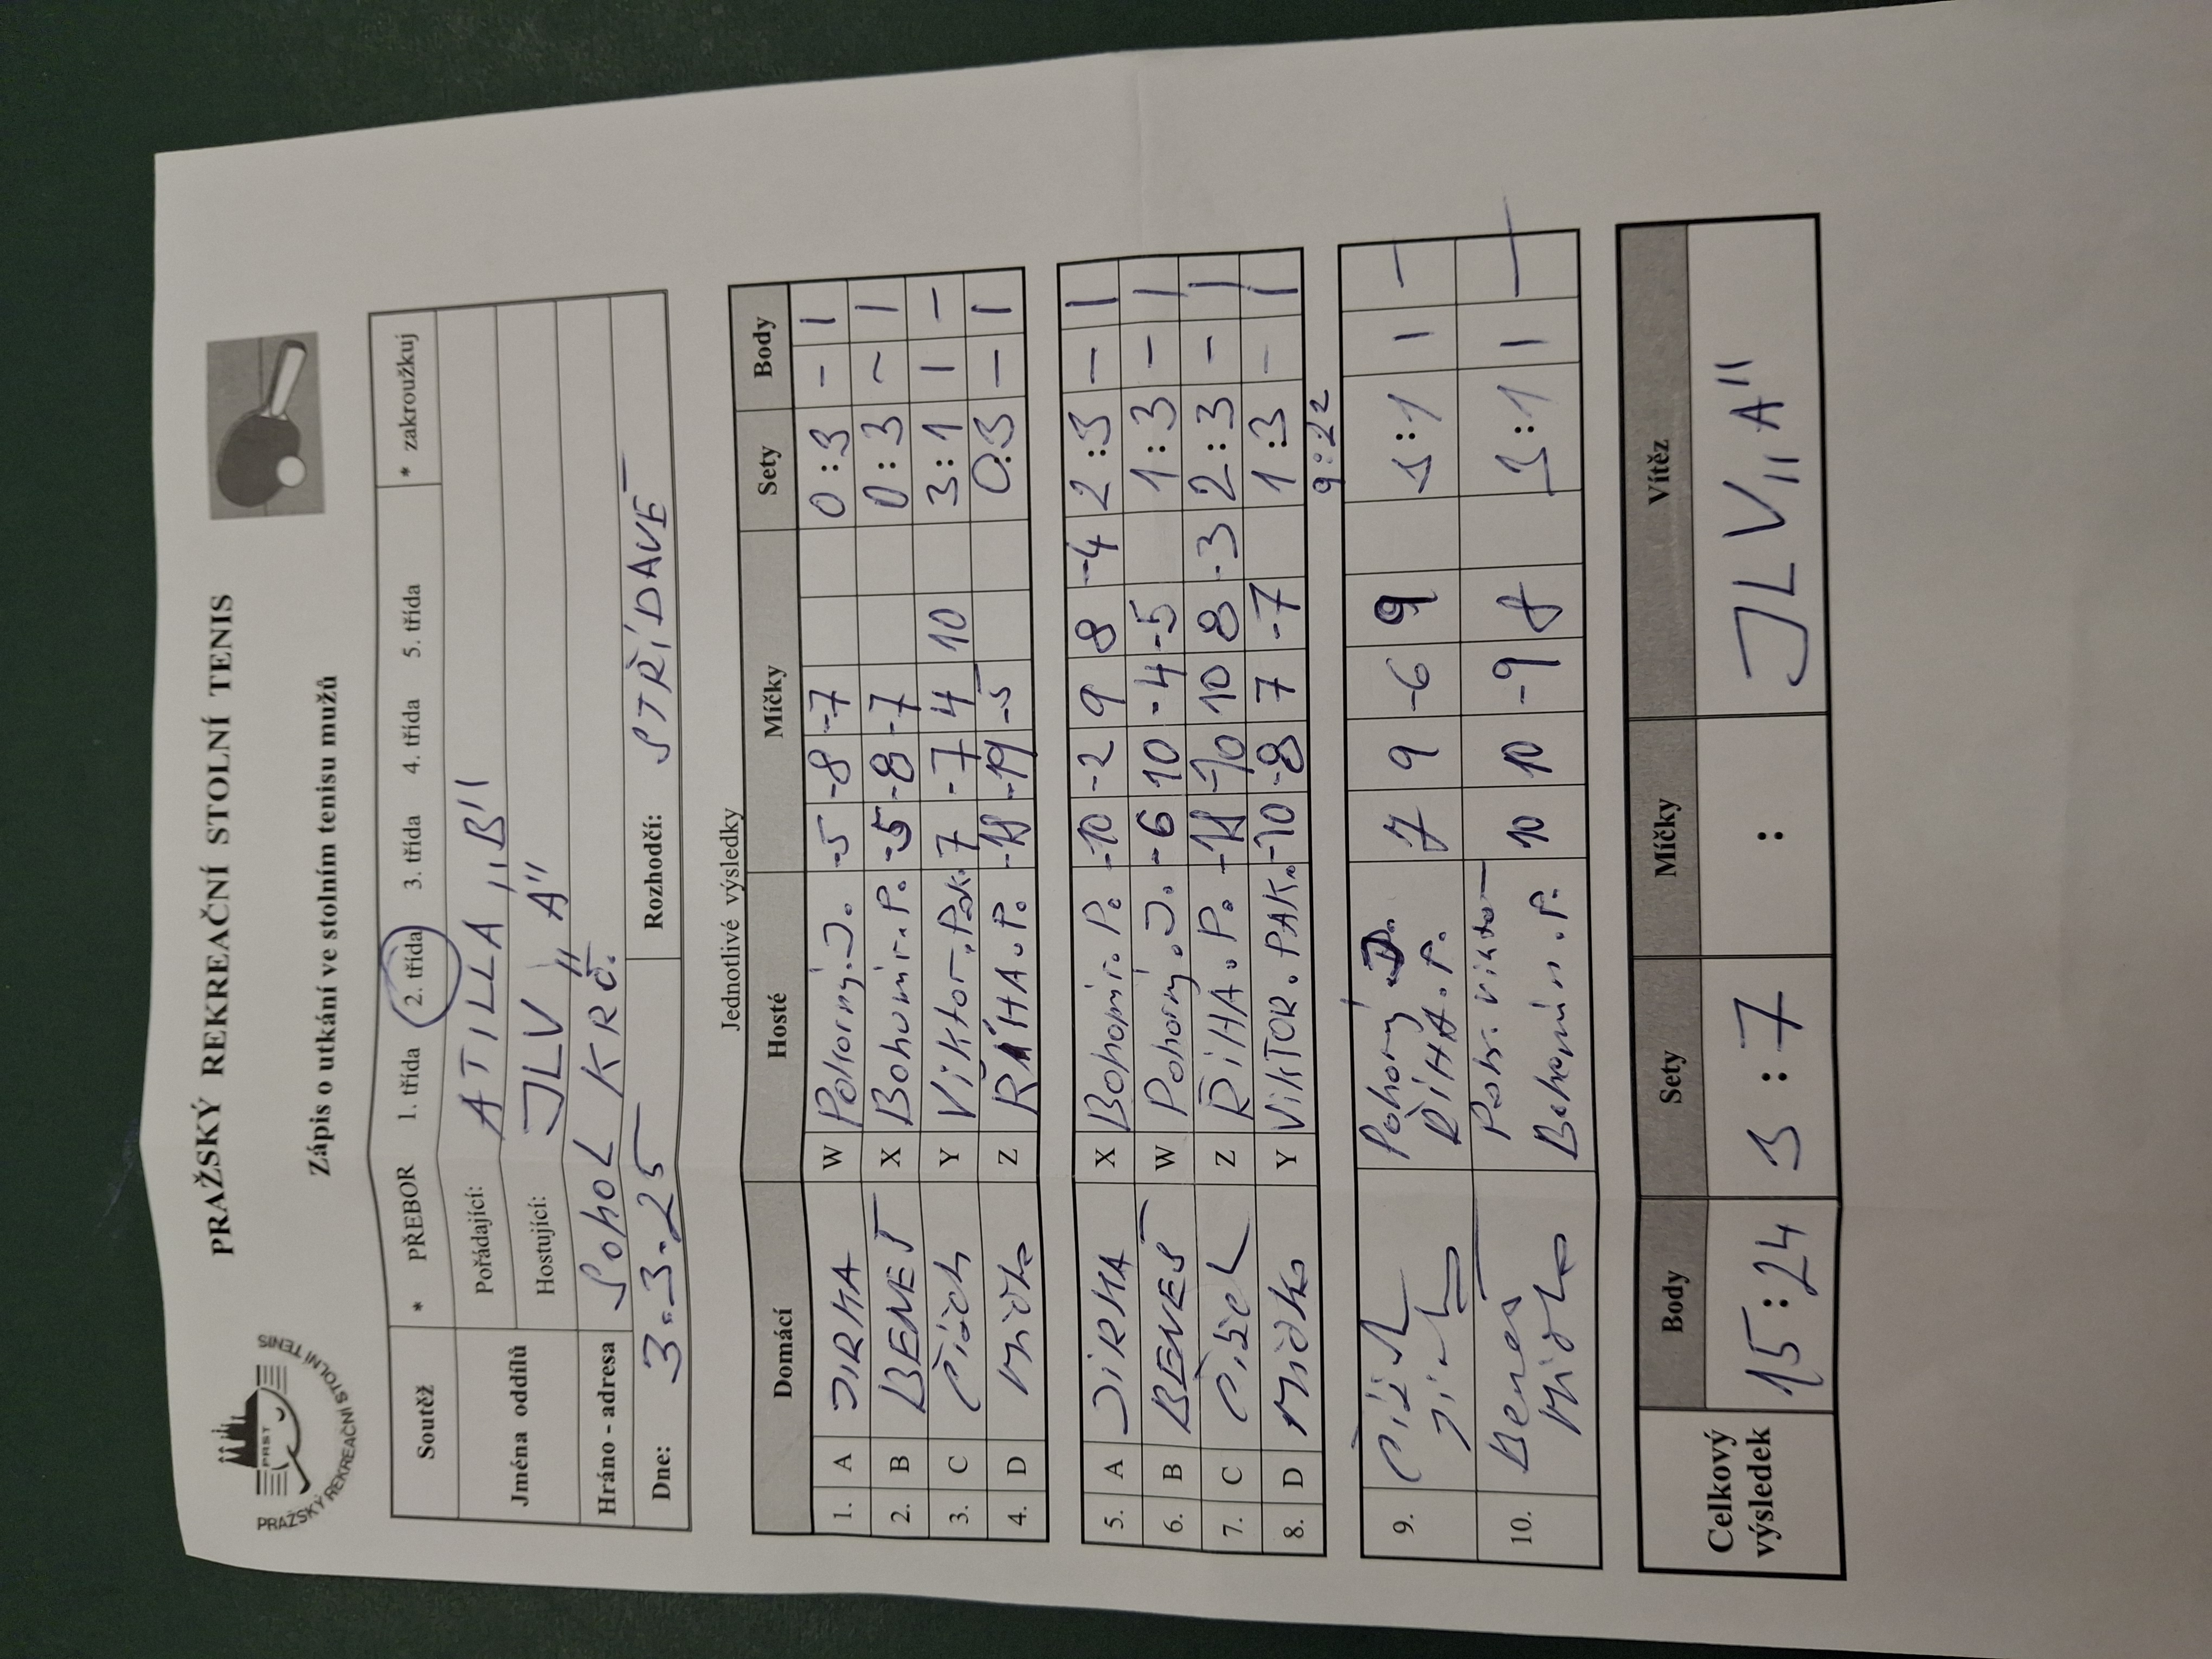 PRAŽSKÝ REKREAČNÍ STOLNÍ TENIS
PRST
PRAŽSKÝ REKREAČNÍ STOLNÍ TENIS
Zápis o utkání ve stolním tenisu mužů
Soutěž * PŘEBOR 1. třída 2. třída 3. třída 4. třída 5. třída * zakroužkuj
Jména oddílů Pořádající: ATILLA „B"
Hostující: JLV "A"
Hráno - adresa SOKOL KRČ.
Dne: 3.3.25 Rozhodčí: STŘÍDAVĚ
Jednotlivé výsledky
Domácí Hosté Míčky Sety Body
1. A JIRKA W Pokorný.J. -5 -8 -7 0:3 - 1
2. B BENEŠ X Bohumír.P. -5 -8 -7 0:3 - 1
3. C Čížek Y Viktor.Pak. 7 -7 4 10 3:1 1 -
4. D Z ŘÍHA.P. -11 -19 -5 0:3 - 1
5. A JIRKA X Bohomír.P. -10 -2 9 8 -4 2:3 - 1
6. B BENEŠ W Pokorný.J. -6 10 -4 -5 1:3 - 1
7. C Čížek Z ŘÍHA.P. -11 -10 10 8 -3 2:3 - 1
8. D Y VIKTOR.PAK. -10 -8 7 -7 1:3 - 1
9:22
9. Čížek Pokorný J. 7 9 -6 9 3:1 1 -
ŘÍHA.P.
10. Beneš 10 10 -9 8 3:1 1 -
Bohomír.P.
Celkový výsledek Body Sety Míčky Vítěz
15:24 3:7 : JLV „A"